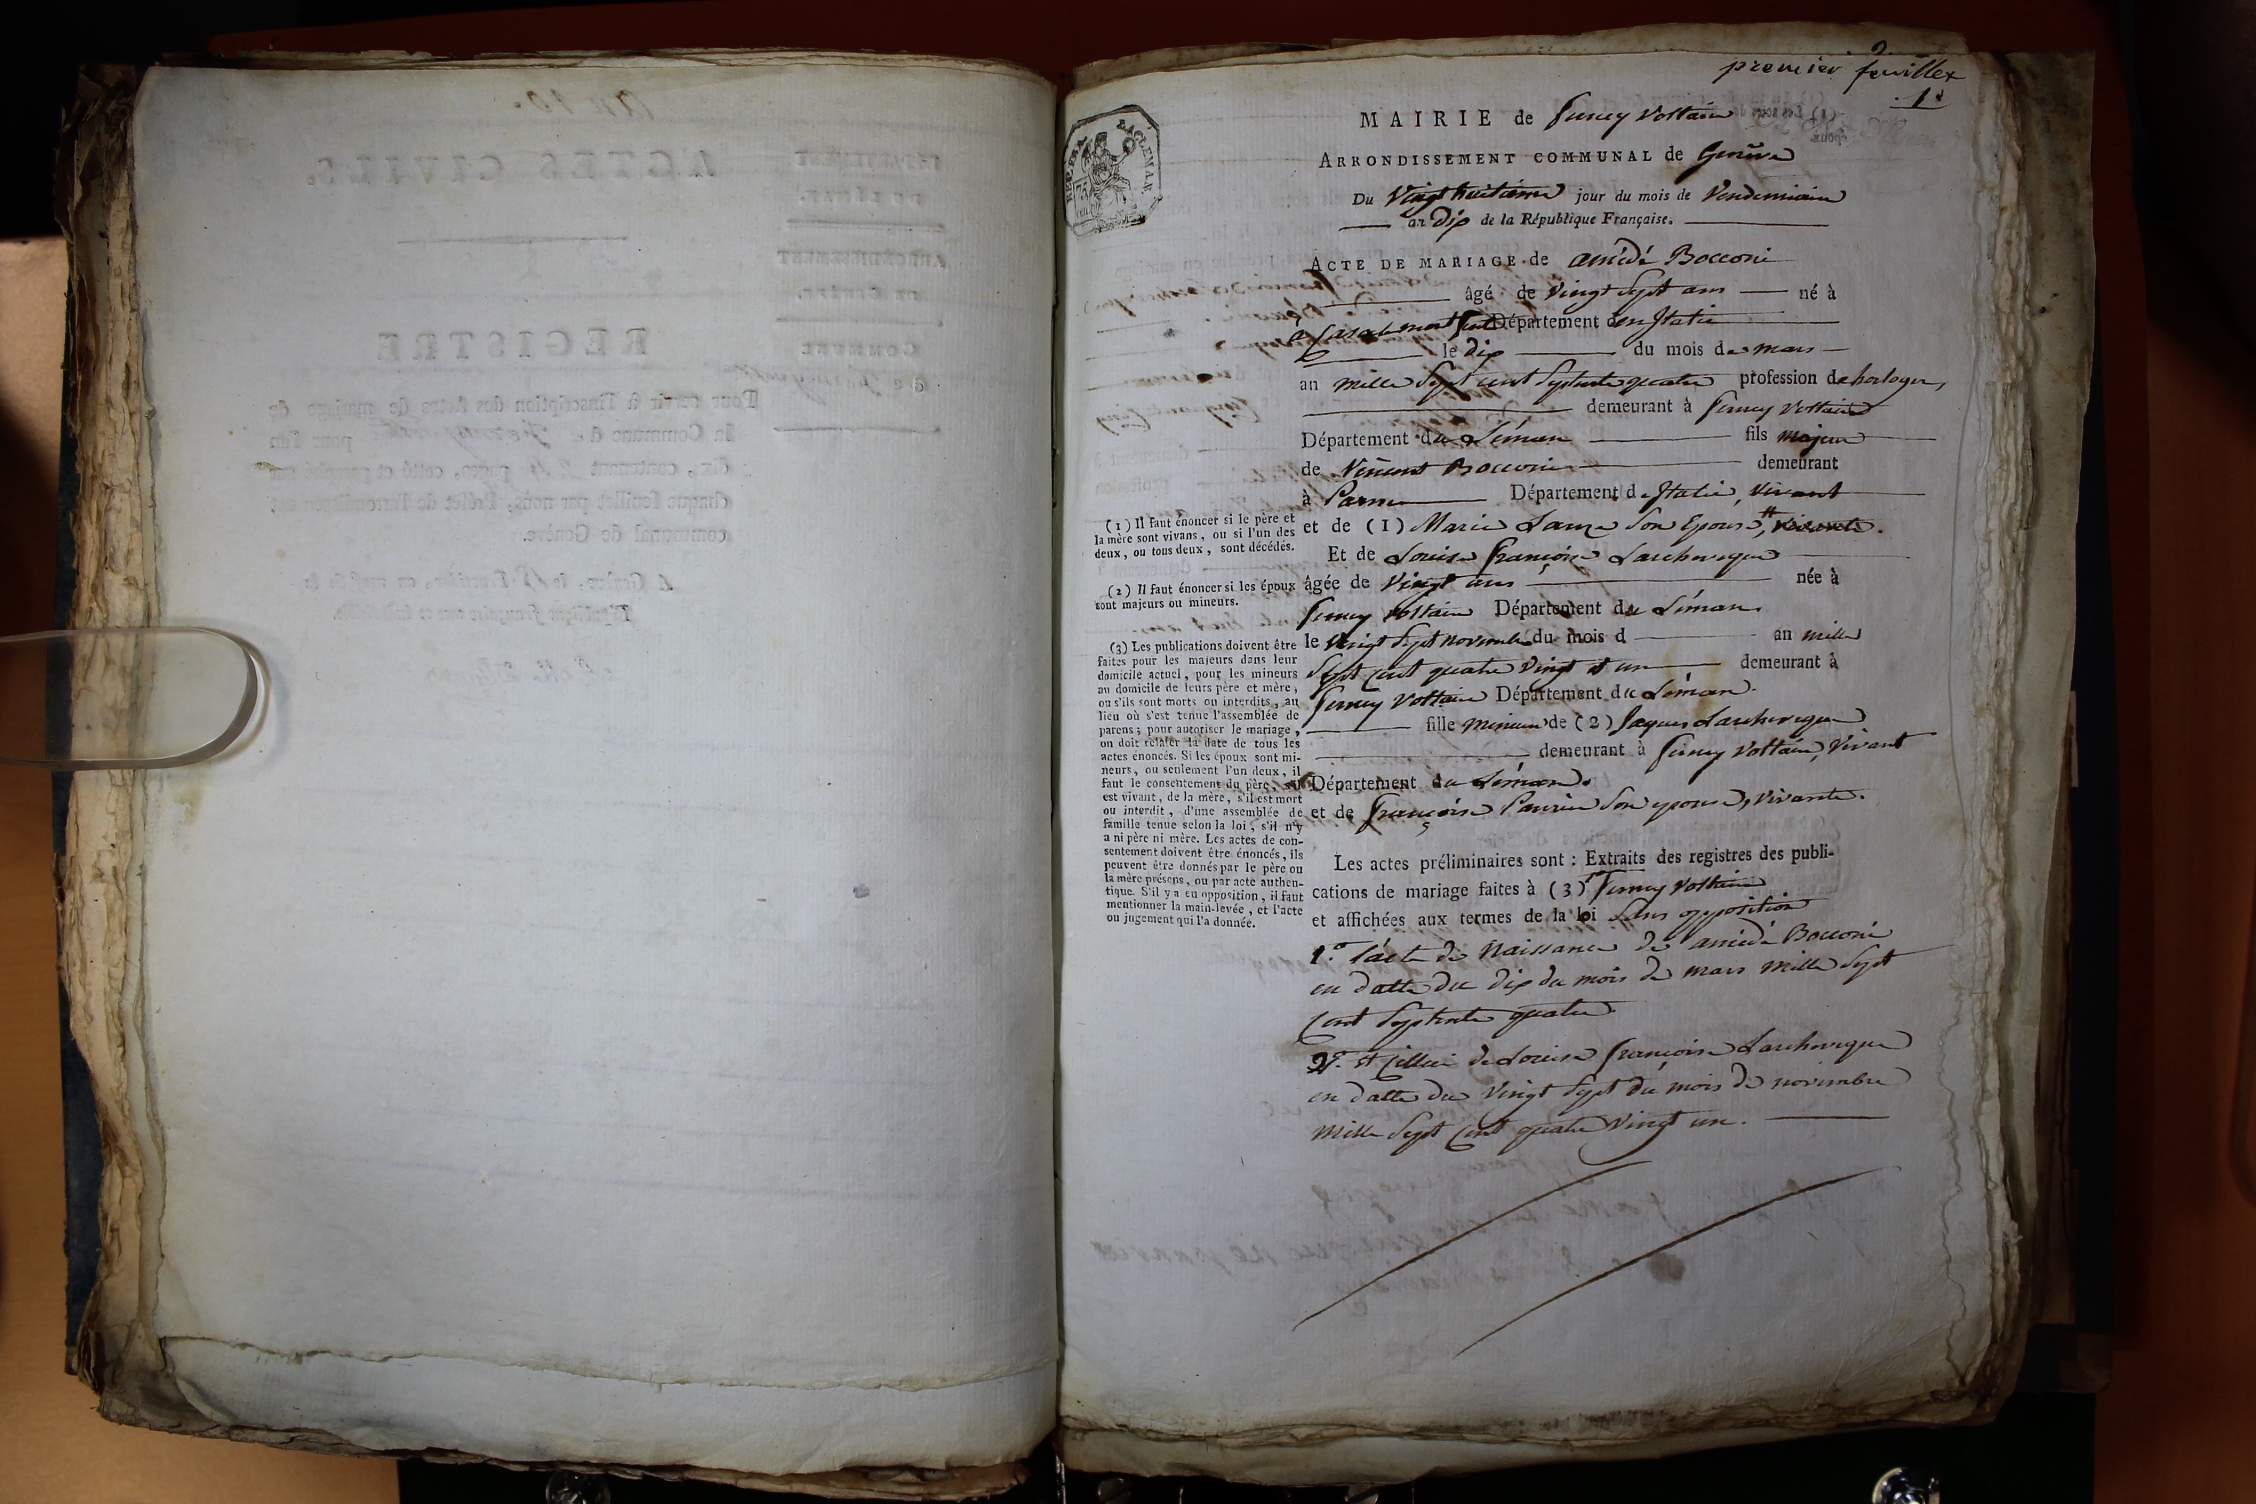 premier feuillet
1
MAIRIE de Ferney Voltaire
ARRONDISSEMENT COMMUNAL de Genève
Du Vingt huitième jour du mois de Vendemiaire
an Dix de la République Française.
ACTE DE MARIAGE de amédé Bocconi
âgé de Vingt Sept ans né à
Département d en Italie
le dix du mois de mars
an mille Sept cent Septente quatre profession de horloger,
demeurant à Ferney Voltaire
Département du Léman fils majeur
de Vincent Bocconi demeurant
à Parme Département d Italie, Vivant
et de (1) Marie Son Epouse, vivante.
Et de Louise Françoise Larcheveque
âgée de Vingt ans née à
Ferney Voltaire Département du Léman.
le Vingt Sept novembre du mois d an mille
Sept Cent quatre Vingt et un demeurant à
Ferney Voltaire Département du Léman.
fille mineure de (2) Jaques Larcheveque
demeurant à Ferney Voltaire, Vivant
Département du Léman.
et de Françoise Son epouse, Vivante.
Les actes préliminaires sont : Extraits des registres des publi-
cations de mariage faites à (3) Ferney Voltaire
et affichées aux termes de la loi Sans opposition
1.º L'acte de Naissance de amédé Bocconi
en datte du dix du mois de mars Mille Sept
Cent Septente quatre
2.º et Cellui de Louise Françoise Larcheveque
en datte du Vingt Sept du mois de novembre
Mille Sept Cent quatre Vingt un.
(1) Il faut énoncer si le père et
la mère sont vivans, ou si l'un des
deux, ou tous deux, sont décédés.
(2) Il faut énoncer si les époux
sont majeurs ou mineurs.
(3) Les publications doivent être
faites pour les majeurs dans leur
domicile actuel, pour les mineurs
au domicile de leurs père et mère,
ou s'ils sont morts ou interdits, au
lieu où s'est tenue l'assemblée de
parens; pour autoriser le mariage,
on doit relater la date de tous les
actes énoncés. Si les époux sont mi-
neurs, ou seulement l'un deux, il
faut le consentement du père, s'il
est vivant, de la mère, s'il est mort
ou interdit, d'une assemblée de
famille tenue selon la loi, s'il n'y
a ni père ni mère. Les actes de con-
sentement doivent être énoncés, ils
peuvent être donnés par le père ou
la mère présens, ou par acte authen-
tique. S'il y a eu opposition, il faut
mentionner la main-levée, et l'acte
ou jugement qui l'a donnée.